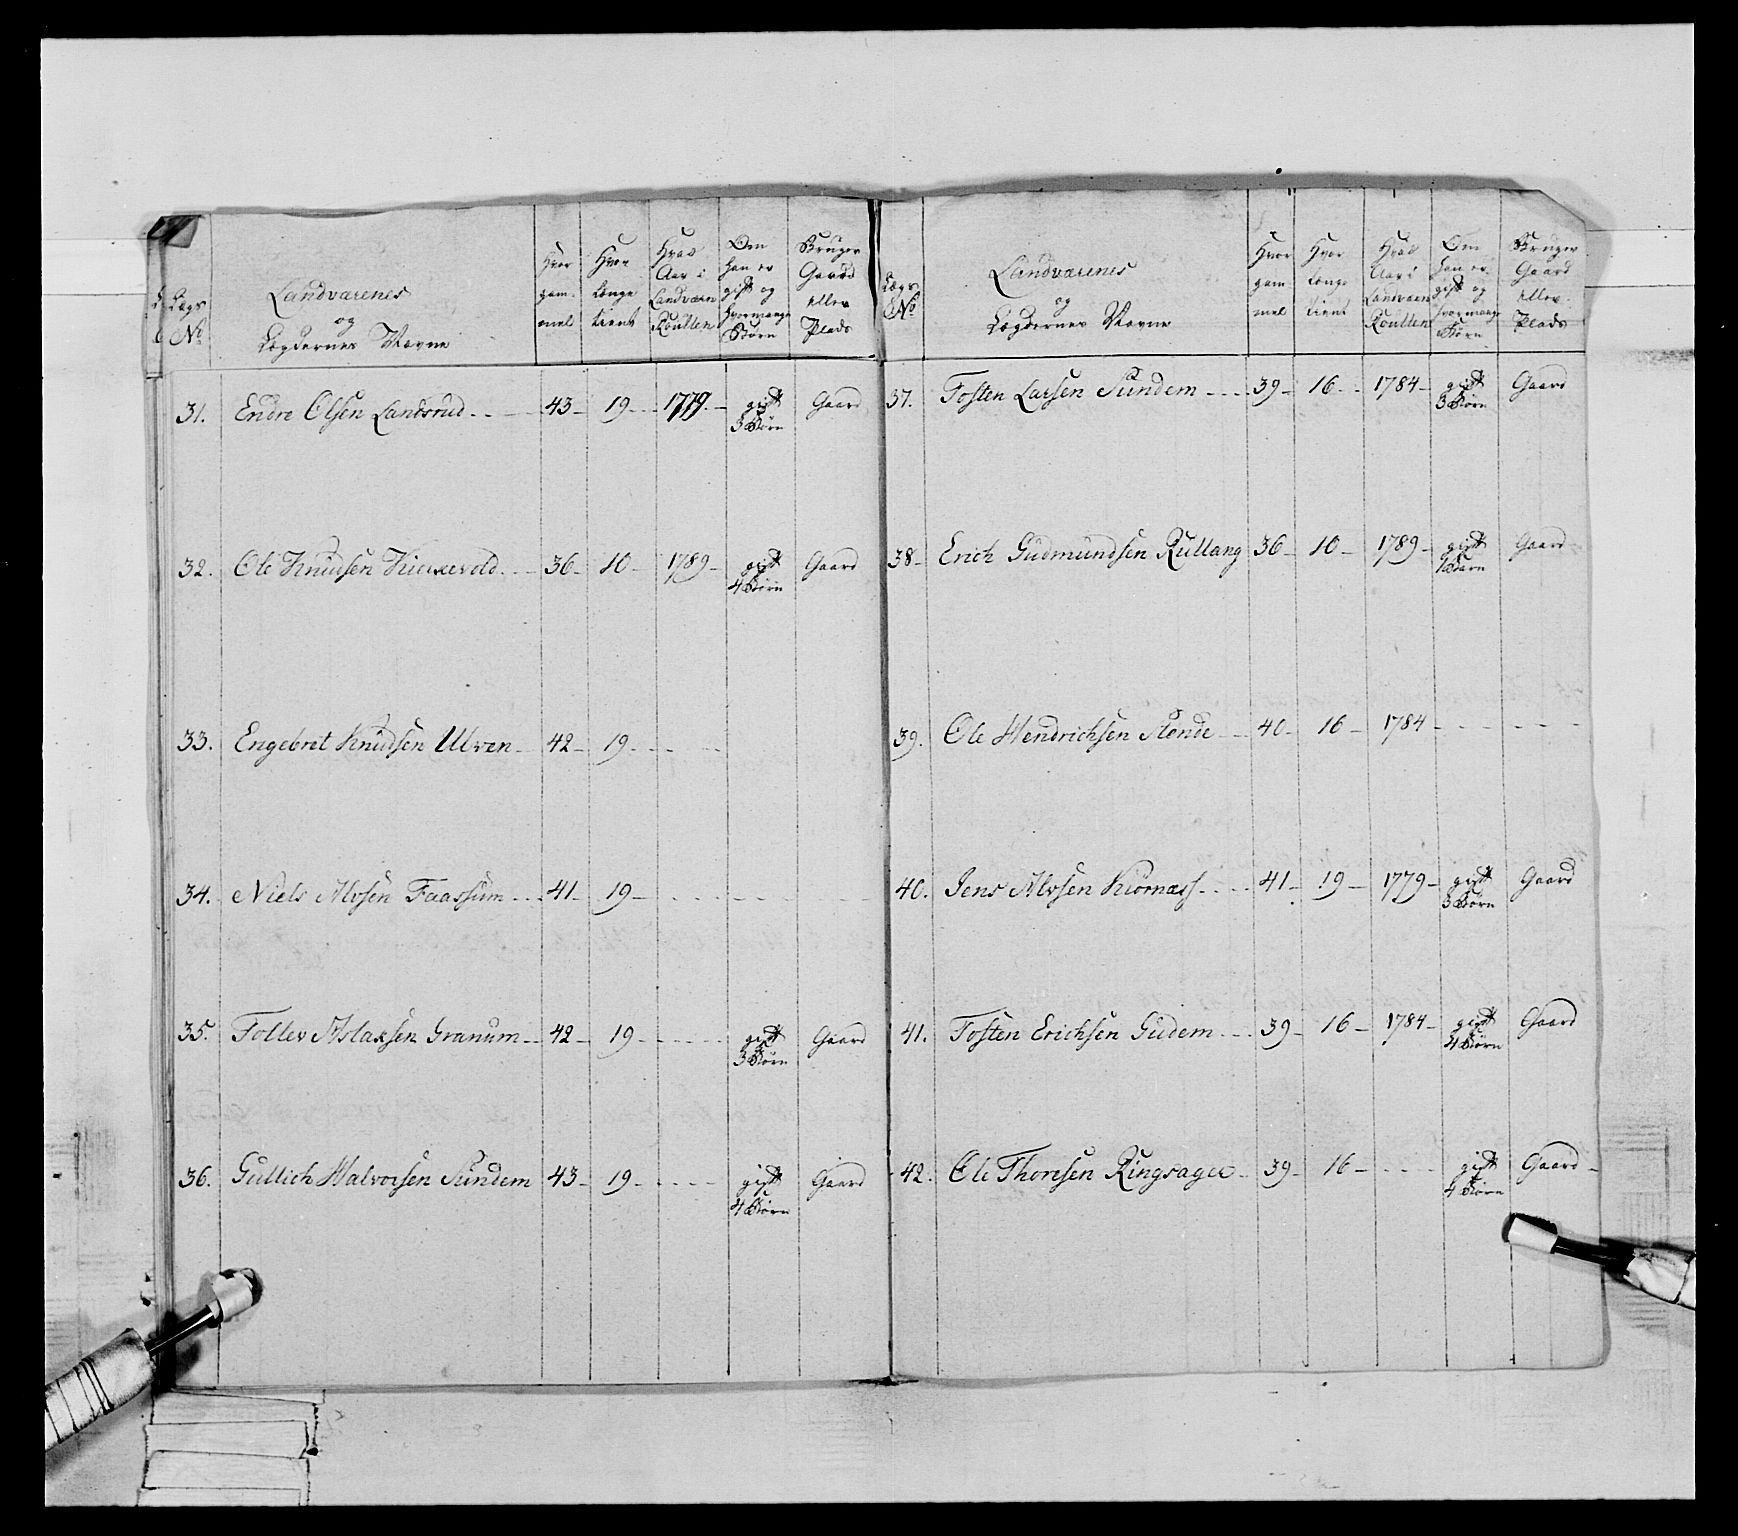 Lægs
No
Landværnes
og
Lægdernes Navne
Hvor
gam-
mel
Hvor
længe
tient
Hvad
Aar i
Landværn
Roullen
Om
han er
gift og
hvormange
Børn
Bruger
Gaard
eller
Plads
31. Endre Olsen Landsrud 43 19 1779 gift Gaard
3 Børn
32. Ole Knudsen 36 10 1789 gift Gaard
4 Børn
33. Engebret Knudsen Ulven 42 19
34. Niels Alvsen Faassum 41 19
35. Tollev Aslaksen Granum 42 19 gift Gaard
3 Børn
36. Gullich Halvorsen Sundem 43 19 gift Gaard
4 Børn
Lægs
No
Landværnes
og
Lægdernes Navne
Hvor
gam
mel
Hvor
længe
tient
Hvad
Aar i
Landværn
Roullen
Om
han er
gift og
hvormange
Børn
Bruger
Gaard
eller
Plads
37. Tosten Larsen Sundem 39 16 1784 gift Gaard
3 Børn
38 Erich Gudmundsen Rullang 36 10 1789 gift Gaard
1 Barn
39. Ole Hendrichsen 40 16 1784
40. Jens Alvsen Kiørnæss 41 19 1779 gift Gaard
3 Børn
41. Tosten Erichsen Gudem 39 16 1784 gift Gaard
4 Børn
42. Ole Thoresen Ringsager 39 16 gift Gaard
4 Børn